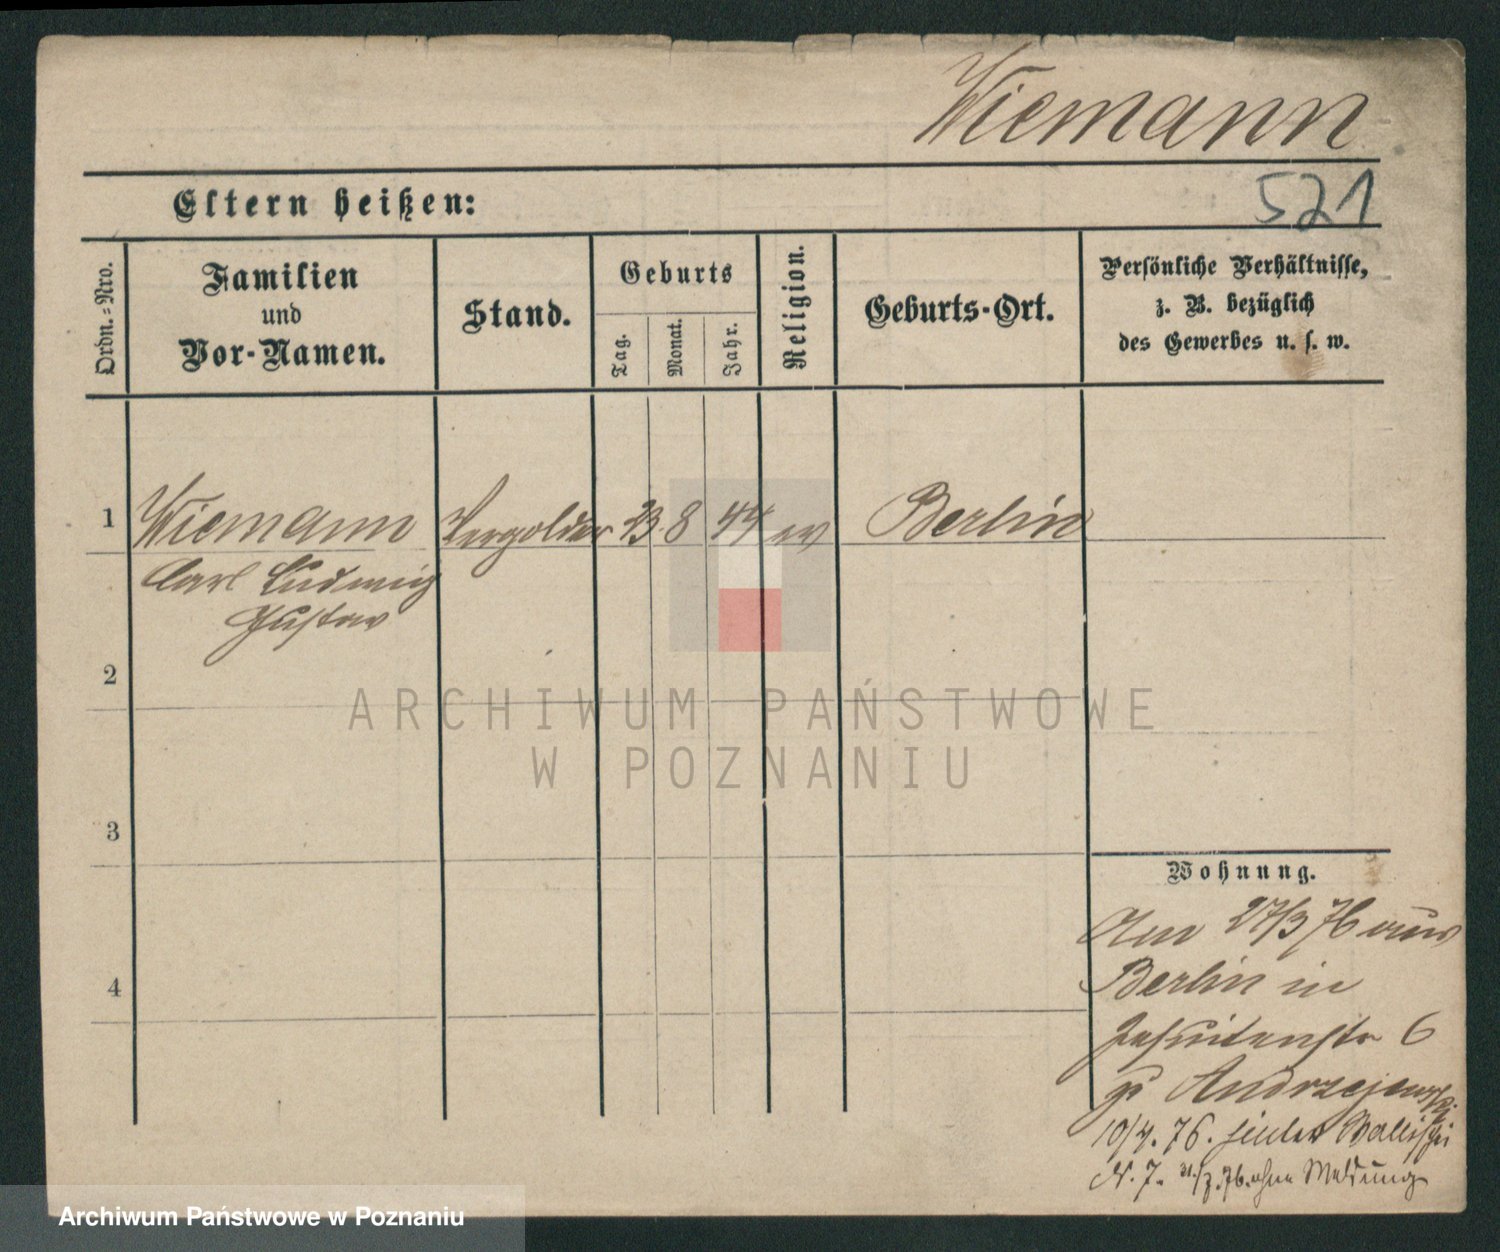 Wiemann
521
Eltern heißen:
Ordn.-Nro.
Familien
und
Vor-Namen.
Stand.
Geburts
Tag.
Monat.
Jahr.
Religion.
Geburts-Ort.
Persönliche Verhältnisse,
z. B. bezüglich
des Gewerbes u. s. w.
1
Wiemann Vergolder 23. 8 44 ev Berlin
Carl Ludwig
Gustav
2
3
4
Wohnung.
Am 27/3 76 aus
Berlin in
Jesuitenstr 6
zu Andrzejewski
10/4. 76. hinter Wallischei
N. 7. 76. ohne Meldung
ARCHIWUM PAŃSTWOWE
W POZNANIU
Archiwum Państwowe w Poznaniu